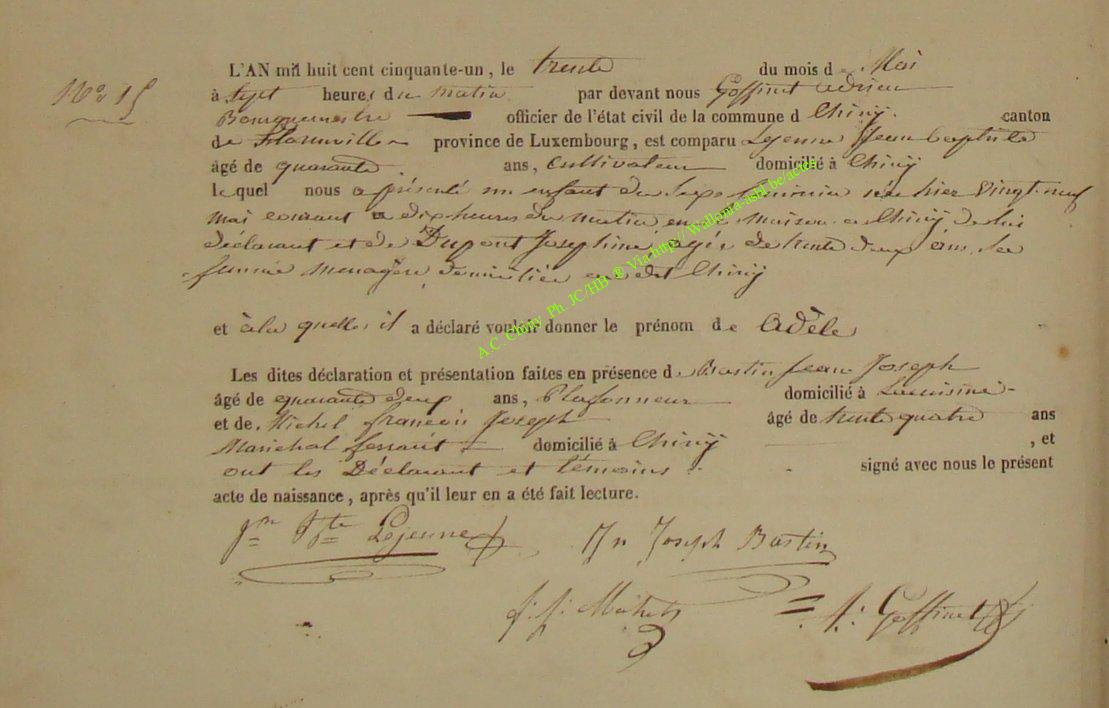 No 15
L'AN mil huit cent cinquante-un, le trente du mois de Mai
à sept heures du matin par devant nous Goffinet Adrien
Bourguemestre officier de l'état civil de la commune d Chiny canton
de Florenville province de Luxembourg, est comparu Lejeune Jean Baptiste
âgé de quarante ans, Cultivateur domicilié à Chiny
lequel nous a présenté un enfant du Sexe féminin née hier vingt-neuf
mai courant a dix heures du matin en maison a Chiny de lui
déclarant et de Dupont Josephine agée de trente deux ans sa
femme menagère domiciliée au dit Chiny
et à la quelle il a déclaré vouloir donner le prénom de Adèle
Les dites déclaration et présentation faites en présence de Bastin Jean Joseph
âgé de quarante deux ans, Plafonneur domicilié à Lacuisine
et de Michel francois Joseph âgé de trente quatre ans
Marichal ferrant domicilié à Chiny , et
ont les Déclarant et témoins signé avec nous le présent
acte de naissance, après qu'il leur en a été fait lecture.
Jn Bte Lejeune Jn Joseph Bastin
f. j. Michel A. Goffinet
A.C Chiny Ph. JC/HB ® Via http// Wallonia-asbl.be/actes